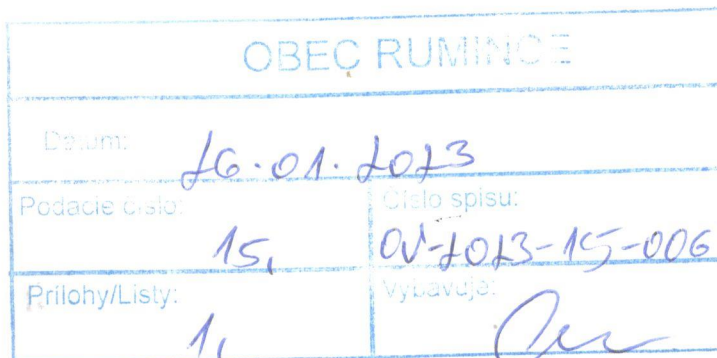 OBEC RUMINCE
Dátum: 26.01.2023
Podacie číslo: 15,
Číslo spisu: OÚ-2023-15-006
Prílohy/Listy: 1,
Vybavuje: